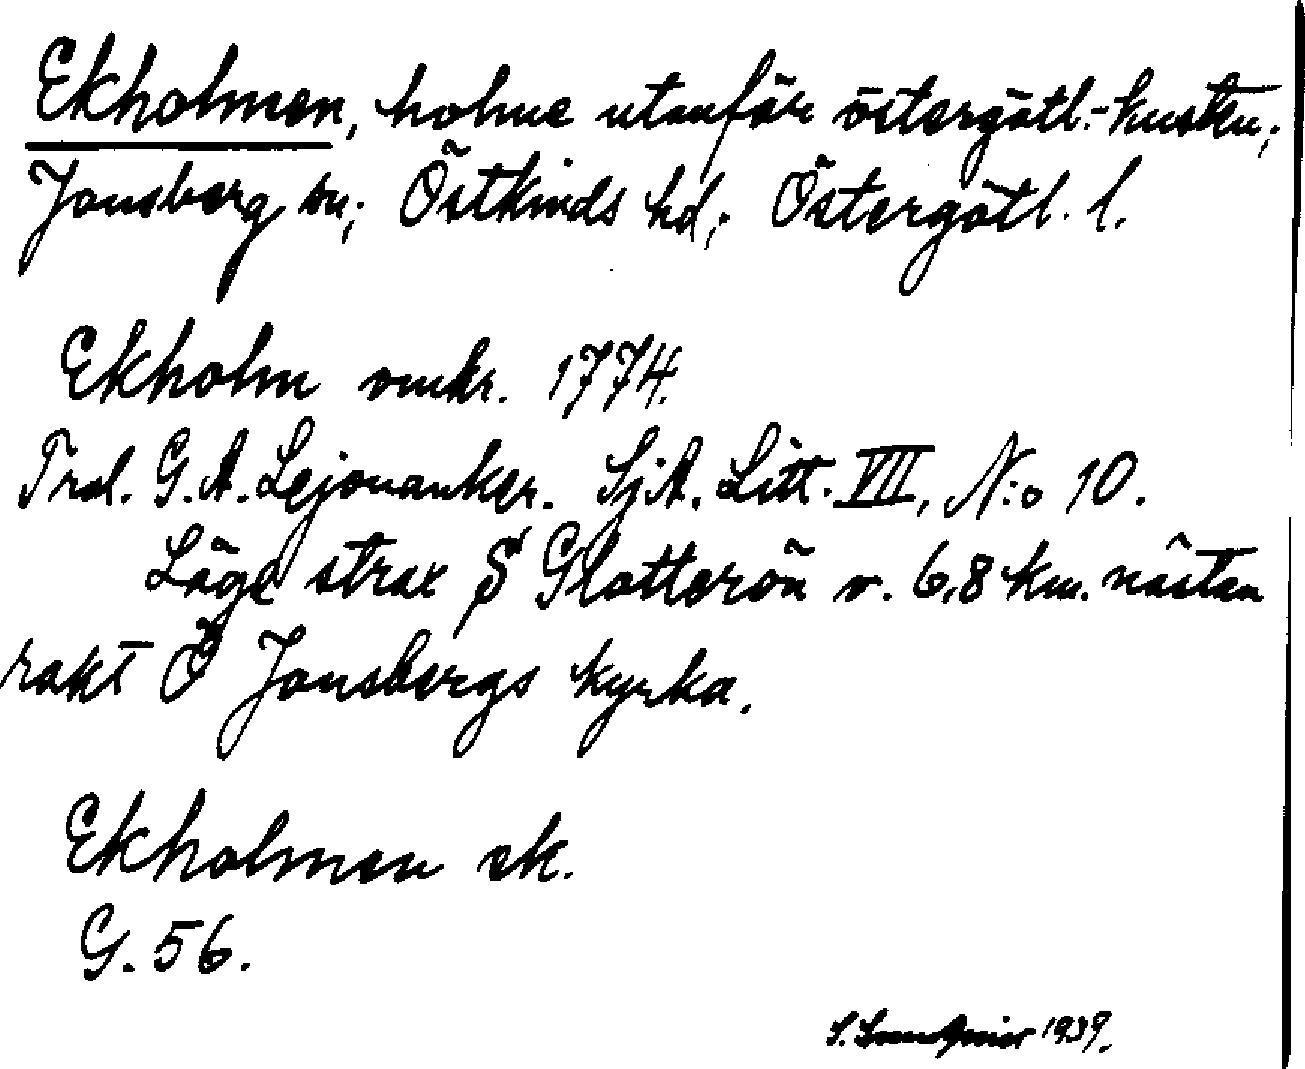 Ekholmen, holme utanför östergötl.-kusten;
Jonsberg sn; Östkinds hd; Östergötl. l.
Ekholm omkr. 1774.
Trol. G. A. Lejonanker. SjA. Litt. VII, N:o 10.
Läge strax S Glotterön o. 6,8 km. nästan
rakt Ö Jonsbergs kyrka.
Ekholmen ek.
G. 56.
S. 1939.